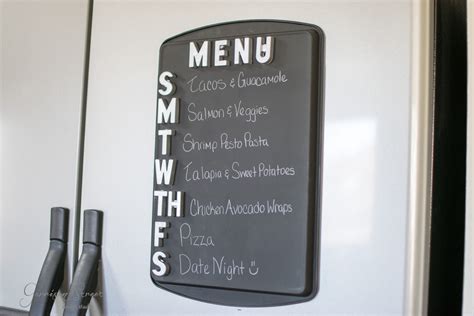 MENU
S Tacos & Guacamole
M Salmon & Veggies
T Shrimp Pesto Pasta
W Talapia & Sweet Potatoes
TH Chicken Avocado Wraps
F Pizza
S Date Night